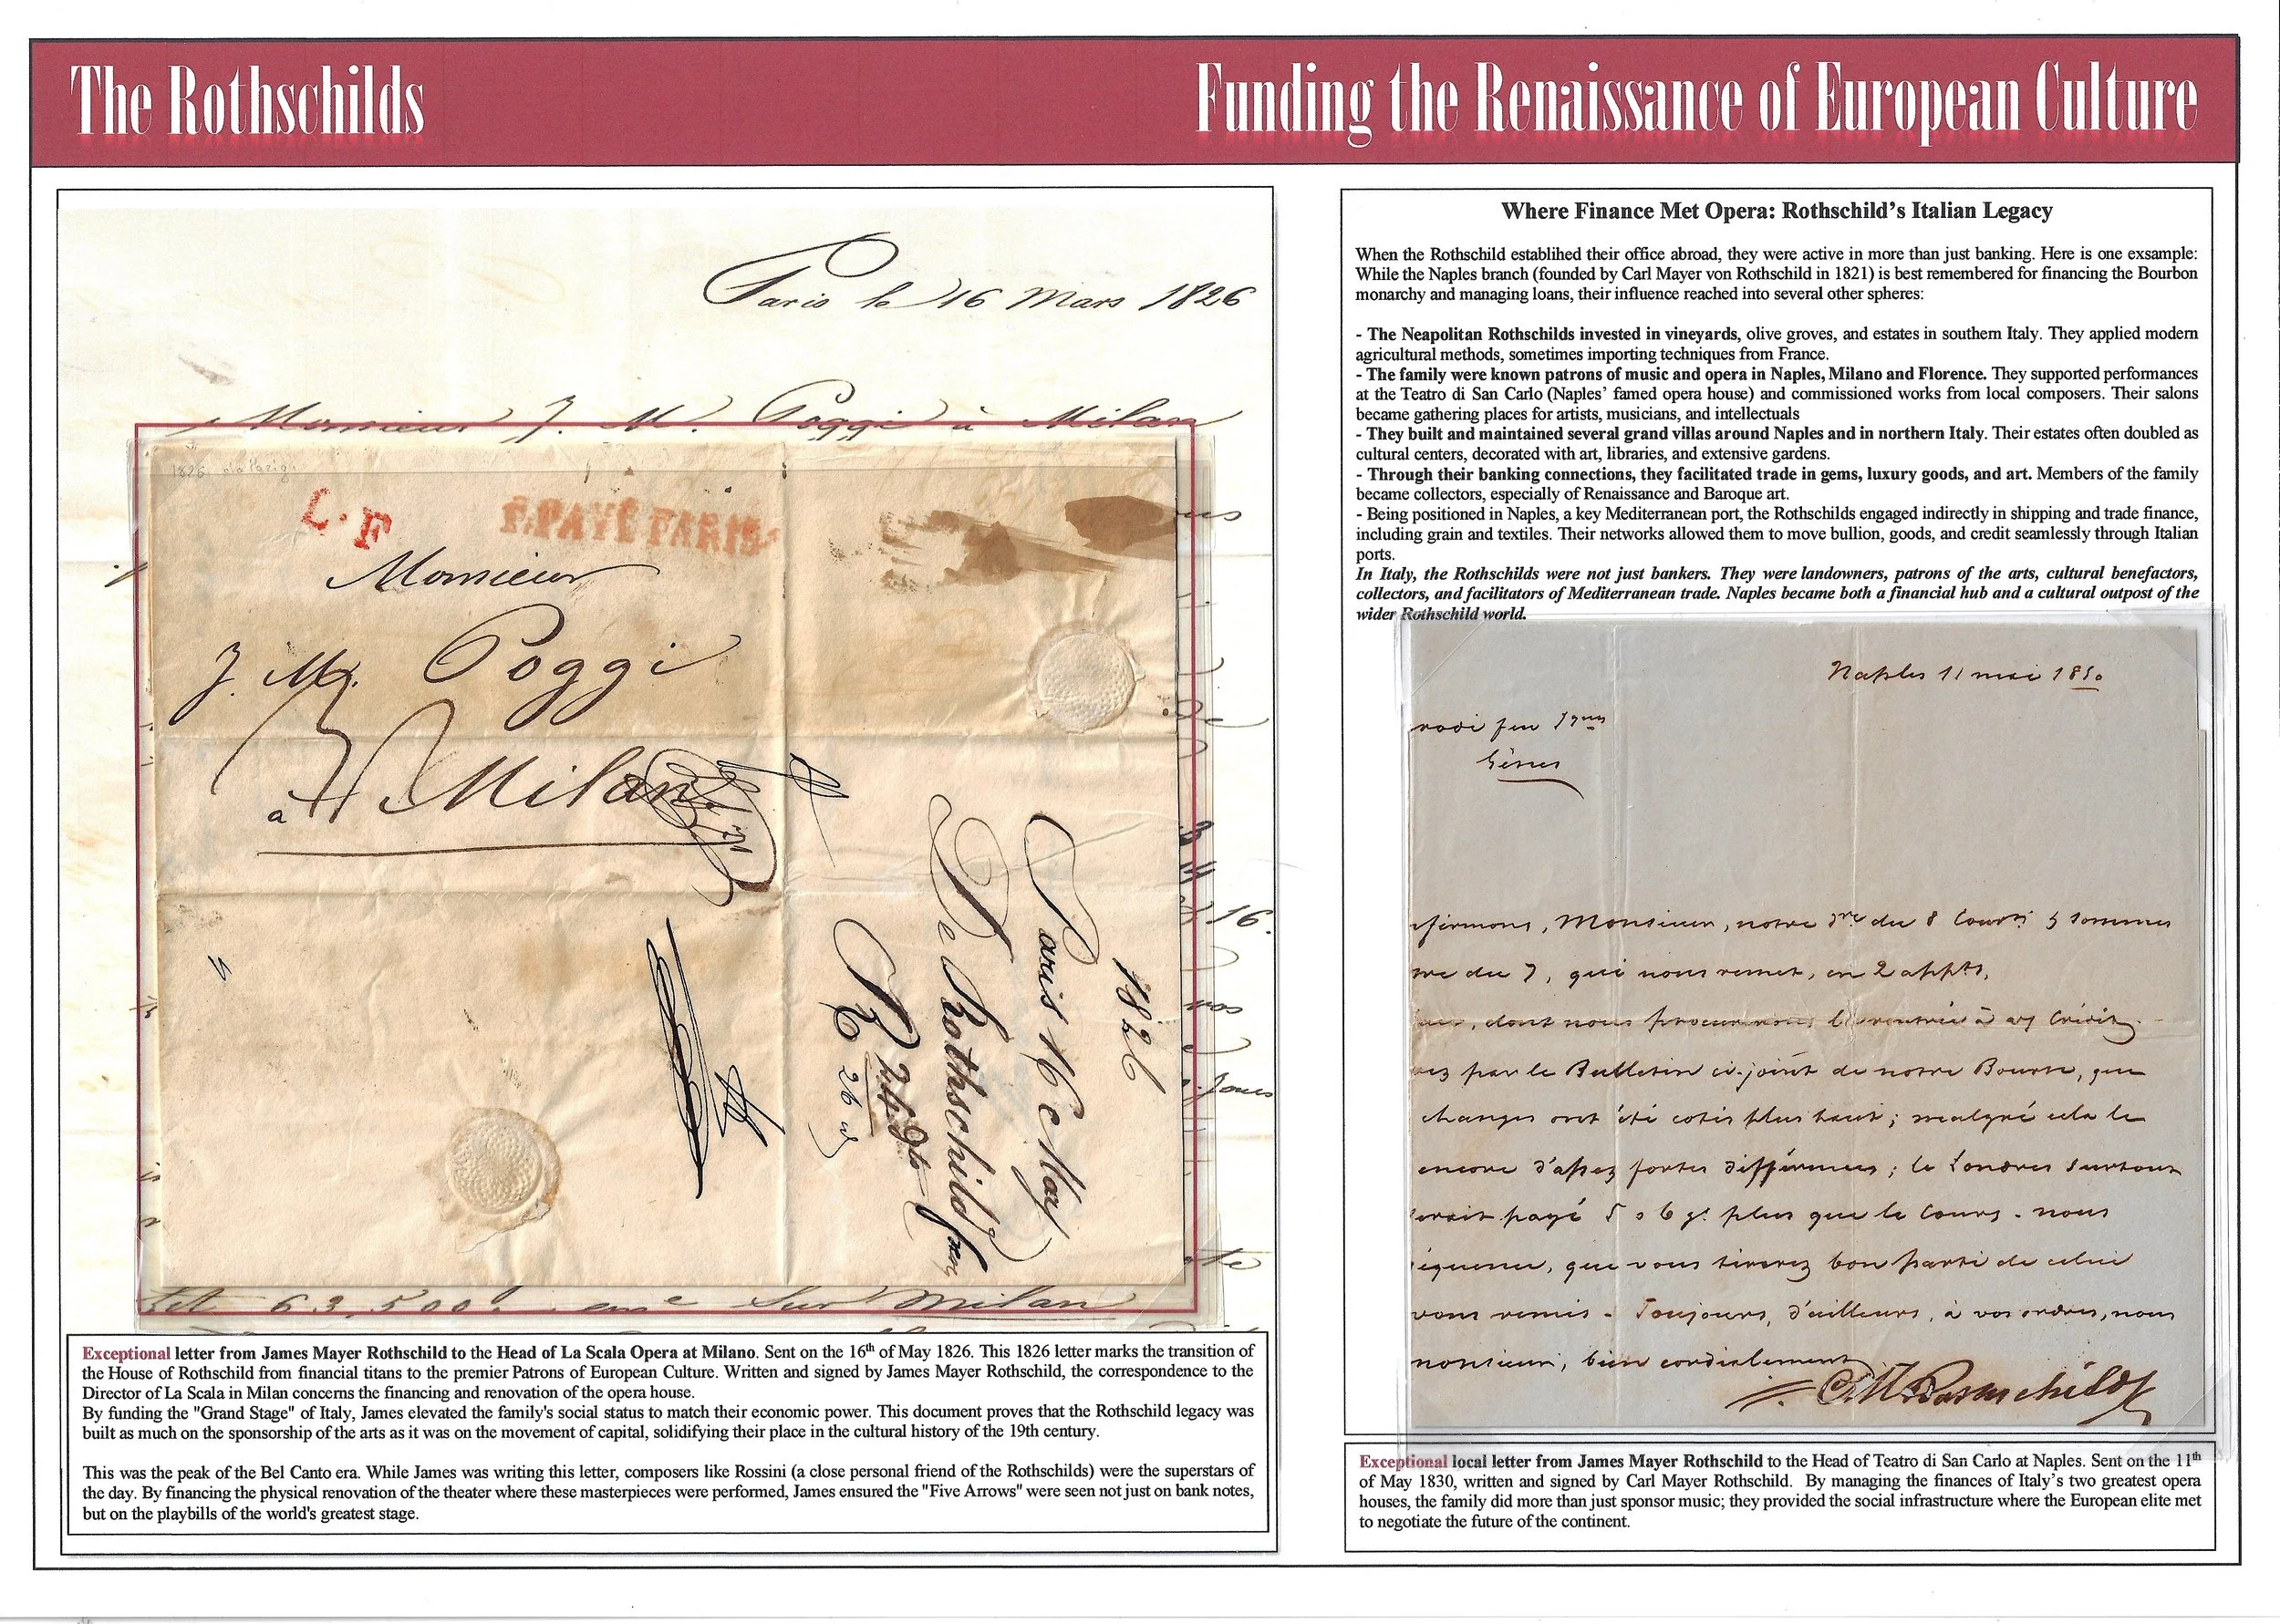 The Rothschilds
Funding the Renaissance of European Culture
Paris le 16 Mars 1826
Monsieur J. M. Poggi à Milan
1826
L. F
P.PAYÉ PARIS
Monsieur
J. M. Poggi
à Milan
1826
Paris 16 May
De Rothschild freres
R 24
26
16.
vos
63,500 sur Milan
Exceptional letter from James Mayer Rothschild to the Head of La Scala Opera at Milano. Sent on the 16th of May 1826. This 1826 letter marks the transition of
the House of Rothschild from financial titans to the premier Patrons of European Culture. Written and signed by James Mayer Rothschild, the correspondence to the
Director of La Scala in Milan concerns the financing and renovation of the opera house.
By funding the "Grand Stage" of Italy, James elevated the family's social status to match their economic power. This document proves that the Rothschild legacy was
built as much on the sponsorship of the arts as it was on the movement of capital, solidifying their place in the cultural history of the 19th century.
This was the peak of the Bel Canto era. While James was writing this letter, composers like Rossini (a close personal friend of the Rothschilds) were the superstars of
the day. By financing the physical renovation of the theater where these masterpieces were performed, James ensured the "Five Arrows" were seen not just on bank notes,
but on the playbills of the world's greatest stage.
Where Finance Met Opera: Rothschild's Italian Legacy
When the Rothschild establihed their office abroad, they were active in more than just banking. Here is one exsample:
While the Naples branch (founded by Carl Mayer von Rothschild in 1821) is best remembered for financing the Bourbon
monarchy and managing loans, their influence reached into several other spheres:
- The Neapolitan Rothschilds invested in vineyards, olive groves, and estates in southern Italy. They applied modern
agricultural methods, sometimes importing techniques from France.
- The family were known patrons of music and opera in Naples, Milano and Florence. They supported performances
at the Teatro di San Carlo (Naples' famed opera house) and commissioned works from local composers. Their salons
became gathering places for artists, musicians, and intellectuals
- They built and maintained several grand villas around Naples and in northern Italy. Their estates often doubled as
cultural centers, decorated with art, libraries, and extensive gardens.
- Through their banking connections, they facilitated trade in gems, luxury goods, and art. Members of the family
became collectors, especially of Renaissance and Baroque art.
- Being positioned in Naples, a key Mediterranean port, the Rothschilds engaged indirectly in shipping and trade finance,
including grain and textiles. Their networks allowed them to move bullion, goods, and credit seamlessly through Italian
ports.
In Italy, the Rothschilds were not just bankers. They were landowners, patrons of the arts, cultural benefactors,
collectors, and facilitators of Mediterranean trade. Naples became both a financial hub and a cultural outpost of the
wider Rothschild world.
Naples 11 mai 1850
rodi feu
Gênes
firmons, Monsieur, notre du 8 Court & sommes
du 7, qui nous remet, en 2 appts,
dont nous procurerons la rentrée à Crédit
ez par le Bulletin ci-joint de notre Bourse, que
changes ont été cotés plus haut; malgré cela le
encore d'assez fortes différences; le Londres surtout
erait payé 5 a 6 plus que le Cours. nous
équence, que vous tirerez bon parti de celui
vous remis. Toujours, d'ailleurs, à vos ordres, nous
monsieur, bien cordialement
C M Rothschild
Exceptional local letter from James Mayer Rothschild to the Head of Teatro di San Carlo at Naples. Sent on the 11th
of May 1830, written and signed by Carl Mayer Rothschild. By managing the finances of Italy's two greatest opera
houses, the family did more than just sponsor music; they provided the social infrastructure where the European elite met
to negotiate the future of the continent.